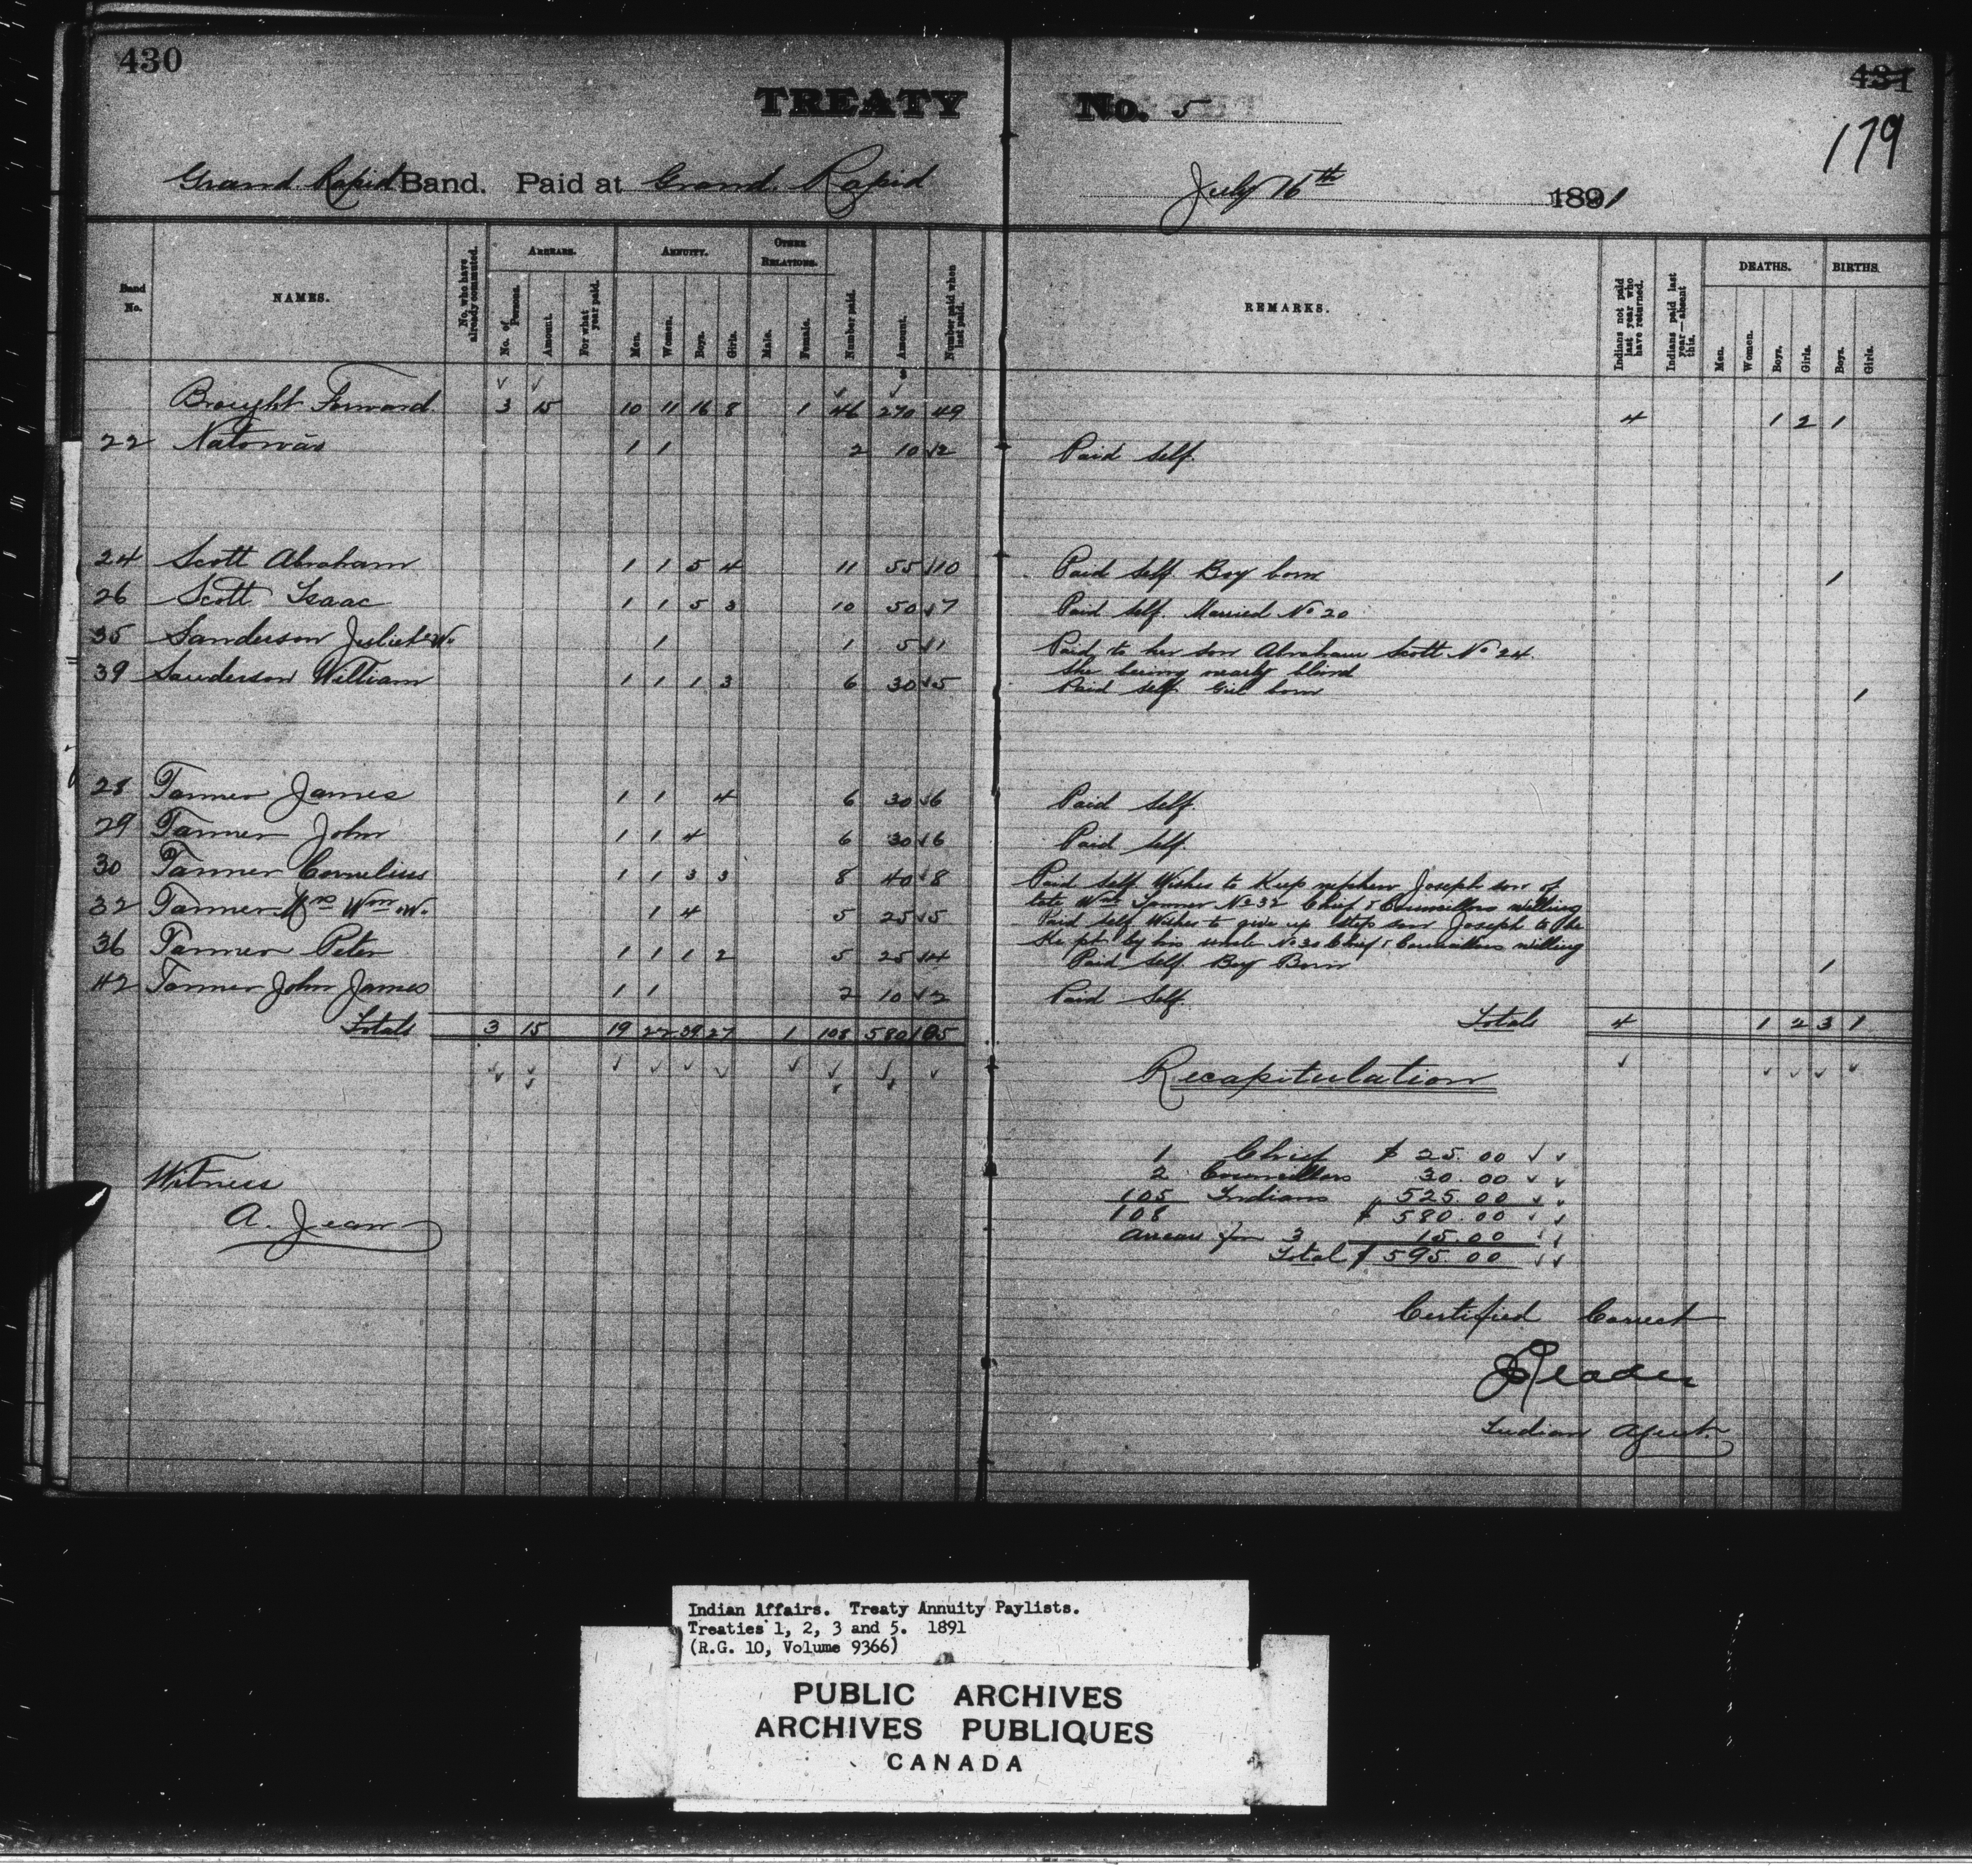 430
431
TREATY No. 5
179
Grand Rapid Band. Paid at Grand Rapid July 16th 1891
Band No.
NAMES.
No. who have already commuted.
ARREARS.
No. of Persons.
Amount.
For what year paid.
ANNUITY.
Men.
Women.
Boys.
Girls.
OTHER RELATIONS.
Male.
Female.
Number paid.
Amount.
Number paid when last paid.
REMARKS.
Indians not paid last year who have returned.
Indians paid last year—absent this.
DEATHS.
Men.
Women.
Boys.
Girls.
BIRTHS.
Boys.
Girls.
Brought Forward 3 15 10 11 16 8 1 46 270 49 4 1 2 1
22 Natowās 1 1 2 10 2 Paid self.
24 Scott Abraham 1 1 5 4 11 55 10 Paid self Boy born 1
26 Scott Isaac 1 1 5 3 10 50 7 Paid self. Married No 20
35 Sanderson Juliet W. 1 1 5 1 Paid to her son Abraham Scott No 24.
she being nearly blind
39 Sanderson William 1 1 1 3 6 30 5 Paid self Girl born 1
28 Tanner James 1 1 4 6 30 6 Paid self.
29 Tanner John 1 1 4 6 30 6 Paid self
30 Tanner Cornelius 1 1 3 3 8 40 8 Paid self Wishes to Keep nephew Joseph son of
late Wm Tanner No 32 Chief & Councillors willing
32 Tanner Mrs Wm W. 1 4 5 25 5 Paid self Wishes to give up step son Joseph to be
Kept by his uncle No 30 Chief & Councillors willing
36 Tanner Peter 1 1 1 2 5 25 4 Paid self Boy Born 1
42 Tanner John James 1 1 2 10 2 Paid Self.
Totals 3 15 19 22 39 27 1 108 580 105 Totals 4 1 2 3 1
Recapitulation
1 Chief $ 25.00
2 Councillors 30.00
105 Indians 525.00
108 $ 580.00
Arrears for 3 15.00
Total $ 595.00
Witness
A. Jean
Certified Correct
Reader
Indian Agent.
Indian Affairs. Treaty Annuity Paylists.
Treaties 1, 2, 3 and 5. 1891
(R.G. 10, Volume 9366)
PUBLIC ARCHIVES
ARCHIVES PUBLIQUES
CANADA